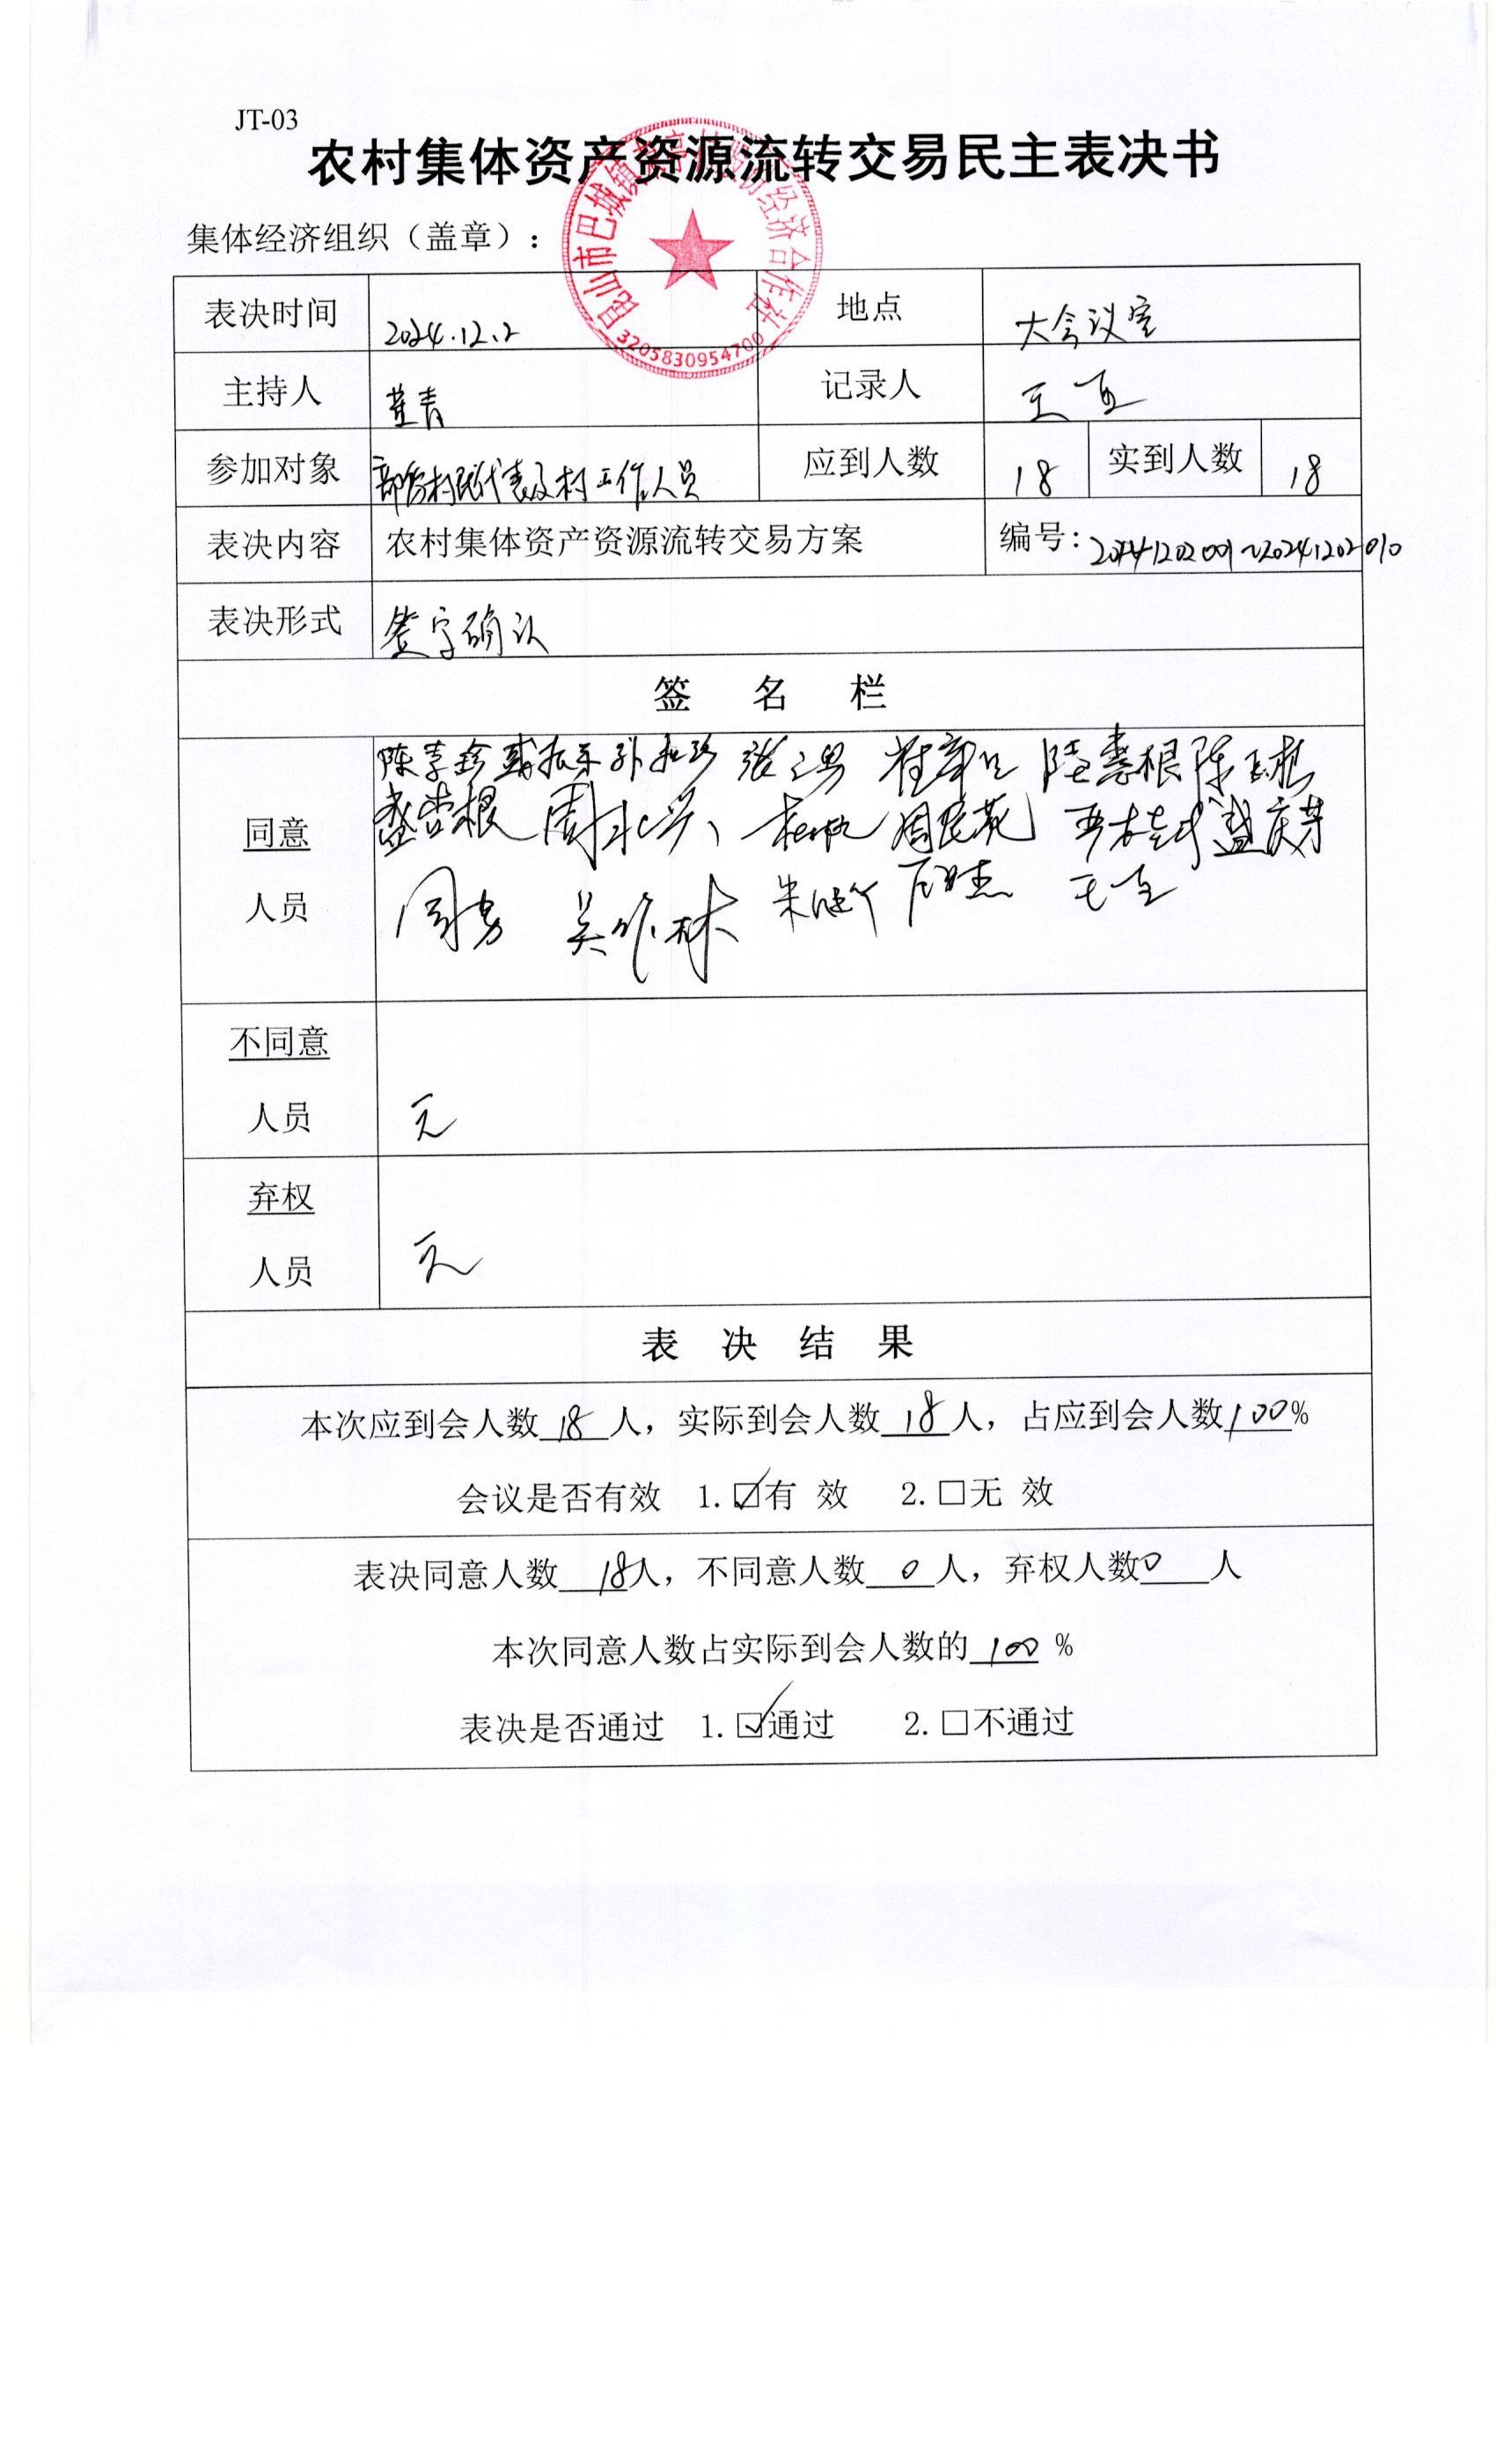 JT-03
农村集体资产资源流转交易民主表决书
集体经济组织（盖章）：
昆山市巴城镇 经济合作社
3205830954700
表决时间 2024.12.2 地点 大会议室
主持人 青 记录人 王
参加对象 部分村民代表及村工作人员 应到人数 18 实到人数 18
表决内容 农村集体资产资源流转交易方案 编号：20241202001~20241202010
表决形式 签字确认
签 名 栏
陈 珍 戴振东 孙 珍 张 男 陆 根 陈
同意 根 周 兴 周 花 盛庆芳
人员 周勇 吴 林 朱 王
不同意
人员 无
弃权
人员 无
表 决 结 果
本次应到会人数 18 人，实际到会人数 18 人，占应到会人数 100%
会议是否有效 1. ☑有 效 2. □无 效
表决同意人数 18人，不同意人数 0 人，弃权人数0 人
本次同意人数占实际到会人数的 100 %
表决是否通过 1. ☑通过 2. □不通过